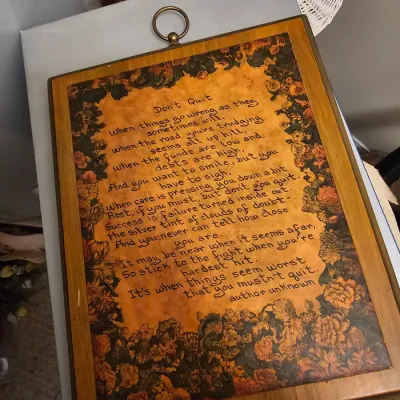 Don't Quit
when things go wrong as they
sometimes will.
when the road you're trudging
seems all up hill,
when the funds are low and
debts are high,
And you want to smile, but you
have to sigh,
when care is pressing you down a bit,
Rest, if you must, but don't you quit.
Success is failure turned inside out-
the silver tint of clouds of doubt-
And you never can tell how close
you are.
It may be near when it seems afar,
So stick to the fight when you're
hardest hit-
It's when things seem worst
that you mustn't quit.
author unknown